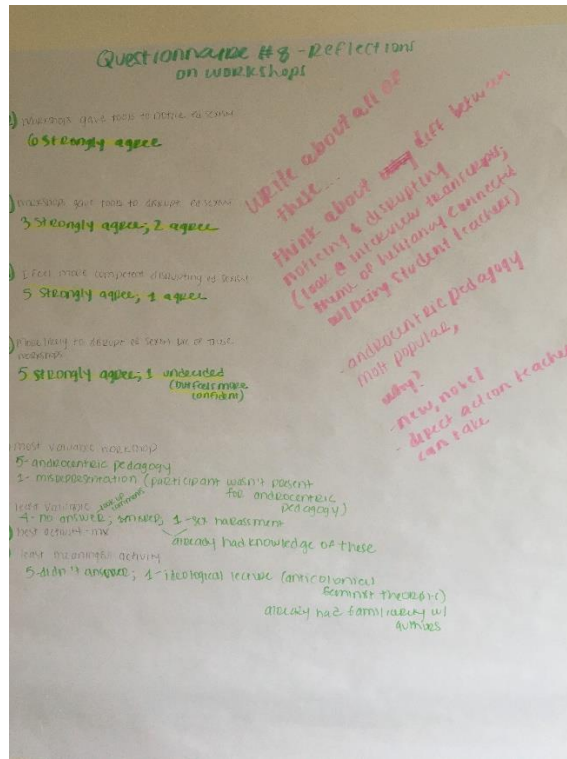 Questionnaire #8 - Reflections
on workshops
workshops gave tools to notice ed sexism
6 strongly agree
workshops gave tools to disrupt ed sexism
3 strongly agree; 2 agree
I feel more competent disrupting ed sexism
5 strongly agree; 1 agree
more likely to disrupt ed sexism bc of these
workshops
5 strongly agree; 1 undecided
(but feels more
confident)
most valuable workshop
5- androcentric pedagogy
1- misrepresentation (participant wasn't present
for androcentric
pedagogy)
least valuable
4- no answer; 1- sex harassment
already had knowledge of these
best activity - mix
least meaningful activity
5-didn't answer; 1-ideological lecture (anticolonial
feminist theorists)
already had familiarity w/
authors
Write about all of
these...
think about diff between
noticing & disrupting
(look @ interview transcripts;
theme of hesitancy connected
w/ being student teachers)
- androcentric pedagogy
most popular,
why?
- new, novel
- direct action teachers
can take